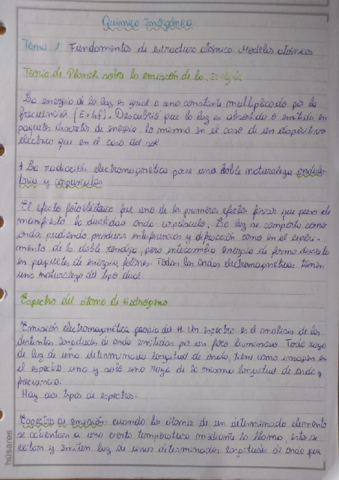 Química Inorgánica
Tema 1 Fundamentos de estructura atómica. Modelos atómicos
Teoría de Planck sobre la emisión de la Energía
La energía de la luz es igual a una constante multiplicada por la
frecuencia. (E=h·f). Descubrió que la luz es absorbida o emitida en
paquetes discretos de energía, lo mismo en el caso de un dispositivo
eléctrico que en el caso del sol
* La radiación electromagnética posee una doble naturaleza ondula-
toria y corpuscular
El efecto fotoeléctrico fue uno de los primeros efectos físicos que puso de
manifiesto la dualidad onda corpúsculo. La luz se comporta como
onda pudiendo producir interferencias y difracción como en el experi-
mento de la doble rendija, pero intercambia energía de forma discreta
en paquetes de energía, fotones. Todas las ondas electromagnéticas tienen
una naturaleza del tipo dual.
Espectro del átomo de hidrógeno
Emisión electromagnética propia del H. Un espectro es el análisis de las
distintas longitudes de onda emitidas por un foco luminoso. Todo rayo
de luz de una determinada longitud de onda, tiene como imagen en
el espectro una y solo una raya de la misma longitud de onda y
frecuencia.
Hay dos tipos de espectros:
Espectro de emisión: cuando los átomos de un determinado elemento
se calientan a una cierta temperatura mediante la llama estos se
excitan y emiten luz de unas determinadas longitudes de onda que
húsares